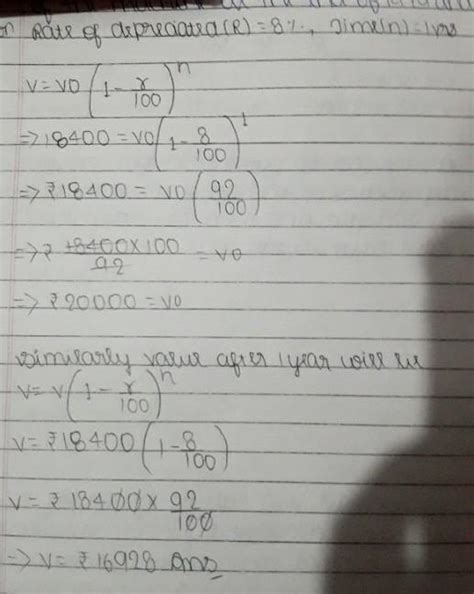 Rate of depreciated (R) = 8%, Time(n) = 1 yrs
V = VO (1 - r/100)^n
=> 18400 = VO (1 - 8/100)^1
=> ₹18400 = VO (92/100)
=> ₹ 18400 × 100/92 = VO
=> ₹20000 = VO
Similarly value after 1 year will be
V = V (1 - r/100)^n
V = ₹18400 (1 - 8/100)
V = ₹18400 × 92/100
=> V = ₹16928 Ans